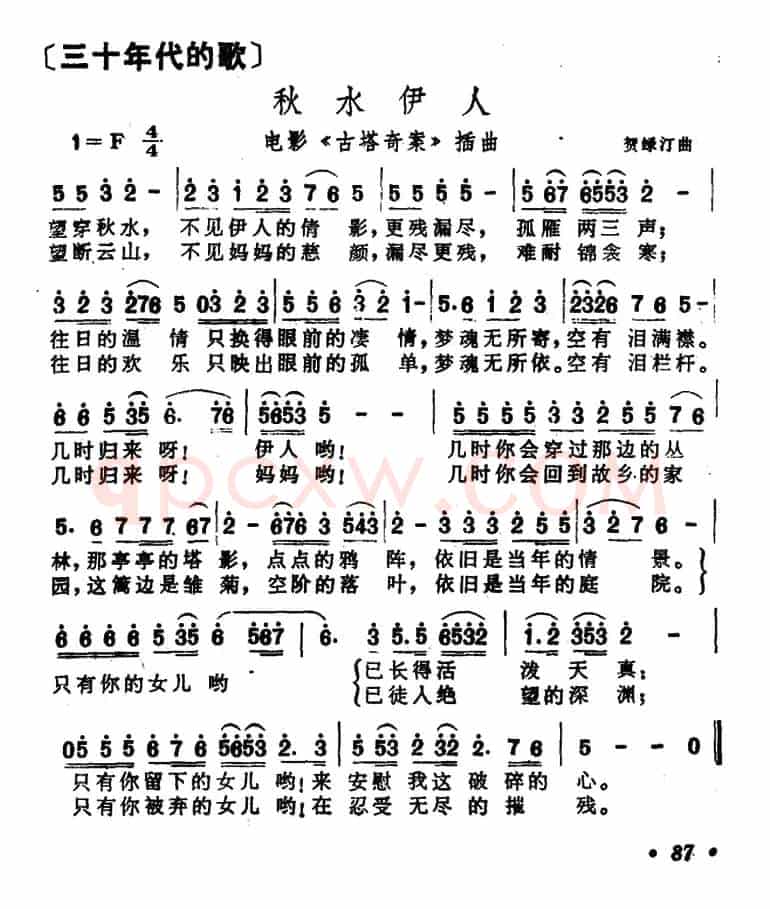 〔三十年代的歌〕
秋水伊人
1=F 4/4 电影《古塔奇案》插曲 贺绿汀曲
5 5 3 2 - | 2 3 1 2 3 7 6 5 | 5 5 5 5 - | 5 67 6553 2 - |
望穿秋水，不见伊人的倩影，更残漏尽，孤雁两三声；
望断云山，不见妈妈的慈颜，漏尽更残，难耐锦衾寒；
3 2 3 276 5 03 2 3 | 5 5 6 3 2 1- | 5. 6 1 2 3 - | 2326 7 6 5- |
往日的温情只换得眼前的凄情，梦魂无所寄，空有泪满襟。
往日的欢乐只映出眼前的孤单，梦魂无所依。空有泪栏杆。
6 6 5 35 6. 76 | 5653 5 - - | 5 5 5 5 3 3 2 5 5 7 6 |
几时归来呀！伊人哟！几时你会穿过那边的丛
几时归来呀！妈妈哟！几时你会回到故乡的家
qpcxw.com
5. 6 7 7 7 67 | 2 - 676 3 543 | 3 3 3 2 5 5 3 2 7 6 - |
林，那亭亭的塔影，点点的鸦阵，依旧是当年的情景。
园，这篱边是雏菊，空阶的落叶，依旧是当年的庭院。
6 6 6 6 5 35 6 567 | 6. 3 5. 5 6532 | 1. 2 353 2 - |
只有你的女儿哟 已长得活泼天真；
已徒人绝望的深渊；
05 5 5 6 6 5 5653 2. 3 | 5 53 2 32 2. 76 | 5 - - 0 ‖
只有你留下的女儿哟！来安慰我这破碎的心。
只有你被弃的女儿哟！在忍受无尽的摧残。
· 87 ·